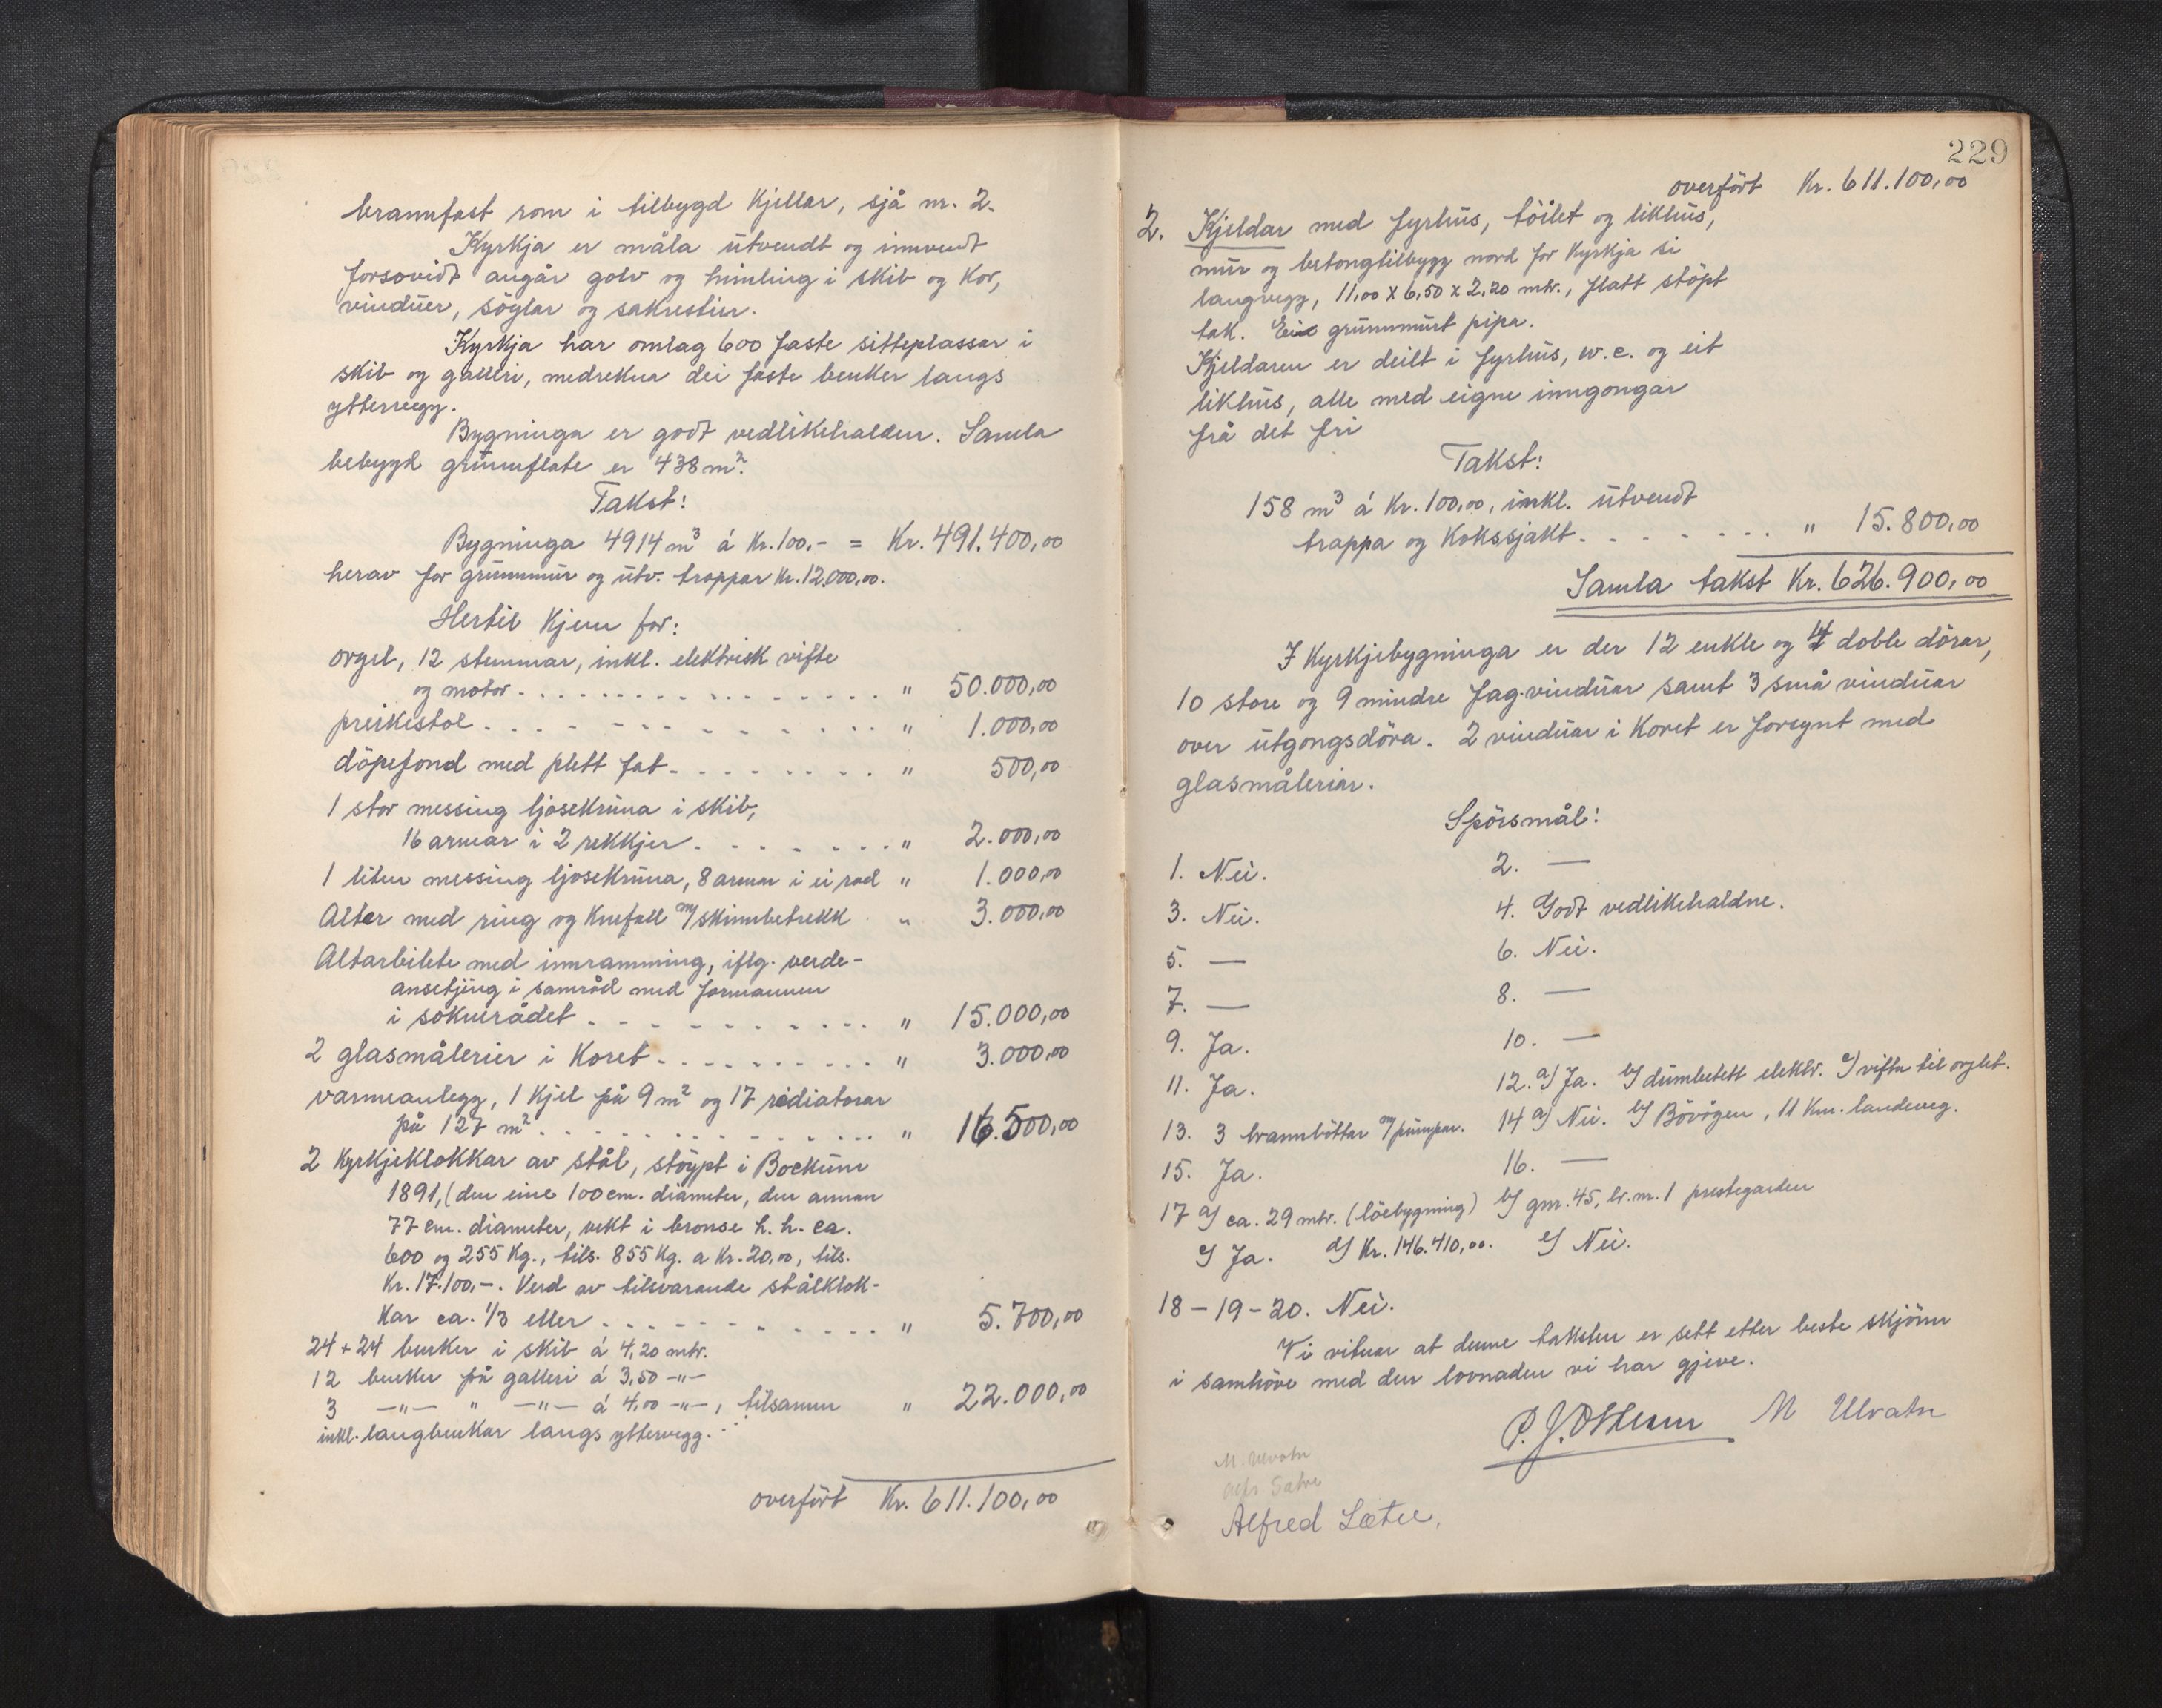 brannfast rom i tilbygd Kjellar, sjå nr. 2.
Kyrkja er måla utvendt og innvendt
forsovidt angår golv og himling i skib og Kor,
vinduer, söylar og sakrestier.
Kyrkja har omlag 600 faste sitteplassar i
skib og galleri, medrekna dei faste benker langs
yttervegg.
Bygninga er godt vedlikehalden. Samla
bebygd grunnflate er 438 m².
Takst:
Bygninga 4914 m³ á Kr. 100,- = Kr. 491.400,00
herav for grunnmur og utv. trappar Kr. 12.000,00.
Hertil Kjem for:
orgel, 12 stemmar, inkl. elektrisk vifte
og motor. . . . . . . . . . . . . . . . " 50.000,00
preikestol. . . . . . . . . . . . . . . " 1.000,00
döpefond med plett fat. . . . . . . . " 500,00
1 stor messing ljosekruna i skib,
16 armar i 2 rekkjer. . . . . . . . " 2.000,00
1 liten messing ljosekruna, 8 armar i ei rad " 1.000,00
Alter med ring og Knefall m/skinnbetrekk " 3.000,00
Altarbilete med innramming, iflg. verde-
ansetjing i samråd med formannen
i soknerådet . . . . . . . . . . . " 15.000,00
2 glasmålerier i Koret. . . . . . . . . . " 3.000,00
varmeanlegg, 1 Kjel på 9 m² og 17 radiatorar
på 127 m². . . . . . . . . . . . . . . " 16.500,00
2 Kyrkjeklokkar av stål, stöypt i Bockum
1891, (den eine 100 cm. diameter, den annan
77 cm. diameter, vekt i bronse h. h. ca.
600 og 255 Kg., tils. 855 Kg. a Kr. 20,00, tils.
Kr. 17.100,-. Verd av tilsvarande stålklok-
Kar ca. 1/3 eller . . . . . . . . . . . . " 5.700,00
24 + 24 benker i skib á 4,20 mtr.
12 benker på galleri á 3,50 -"-
3 -"- " -"- á 4,00 -"-, tilsamen " 22.000,00
inkl. langbenkar langs yttervegg.
overfört Kr. 611.100,00
229
overfört Kr. 611.100,00
2. Kjeldar med fyrhus, töilet og likhus,
mur og betongtilbygg nord for Kyrkja si
langvegg, 11,00 x 6,50 x 2,20 mtr., flatt stöpt
tak. Ein grunnmurt pipa.
Kjeldaren er deilt i fyrhus, w.c. og eit
likhus, alle med eigne inngongar
frå det fri
Takst:
158 m³ á Kr. 100,00, inkl. utvendt
trappa og Kokssjakt. . . . . . . . " 15.800,00
Samla takst Kr. 626.900,00
I Kyrkjebygninga er der 12 enkle og 4 doble dörar,
10 store og 9 mindre fag-vinduar samt 3 små vinduar
over utgongsdöra. 2 vinduar i Koret er forsynt med
glasmåleriar.
Spörsmål:
1. Nei. 2. —
3. Nei. 4. Godt vedlikehaldne.
5. — 6. Nei.
7. — 8. —
9. Ja. 10. —
11. Ja. 12. a) Ja. b) dumbetett elektr. c) vifta til orglet.
13. 3 brannböttar m/pumpar. 14 a) Nei. b) Bövågen, 11 Km. landeveg.
15. Ja. 16. —
17 a) ca. 29 mtr. (löebygning) b) gnr. 45, br. nr. 1 prestegarden
c) Ja. d) Kr. 146.410,00. e) Nei.
18 – 19 – 20. Nei.
Vi vitnar at denne taksten er sett etter beste skjönn
i samhöve med den lovnaden vi har gjeve.
M Ulvatn
M. Ulvatn
Alfred Sætre.